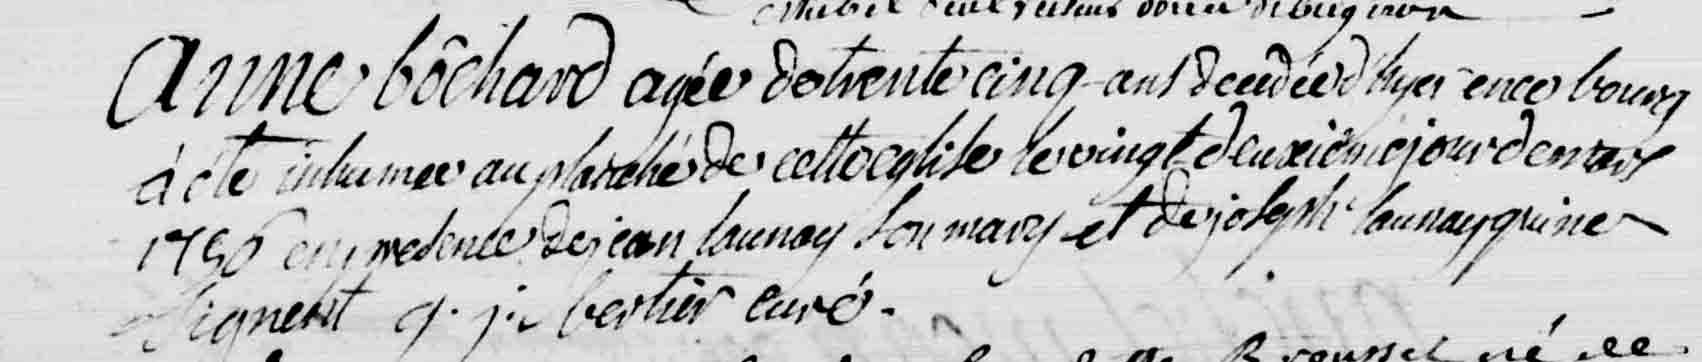 Anne bôchard agée de trente cinq ans decedée d'hyer en ce bourg
a été inhumee au placitre de cette eglise le vingt deuxiéme jour de mars
1756 en presence de jean launay son mary et de joseph launay qui ne
signent g. j. bertier curé.